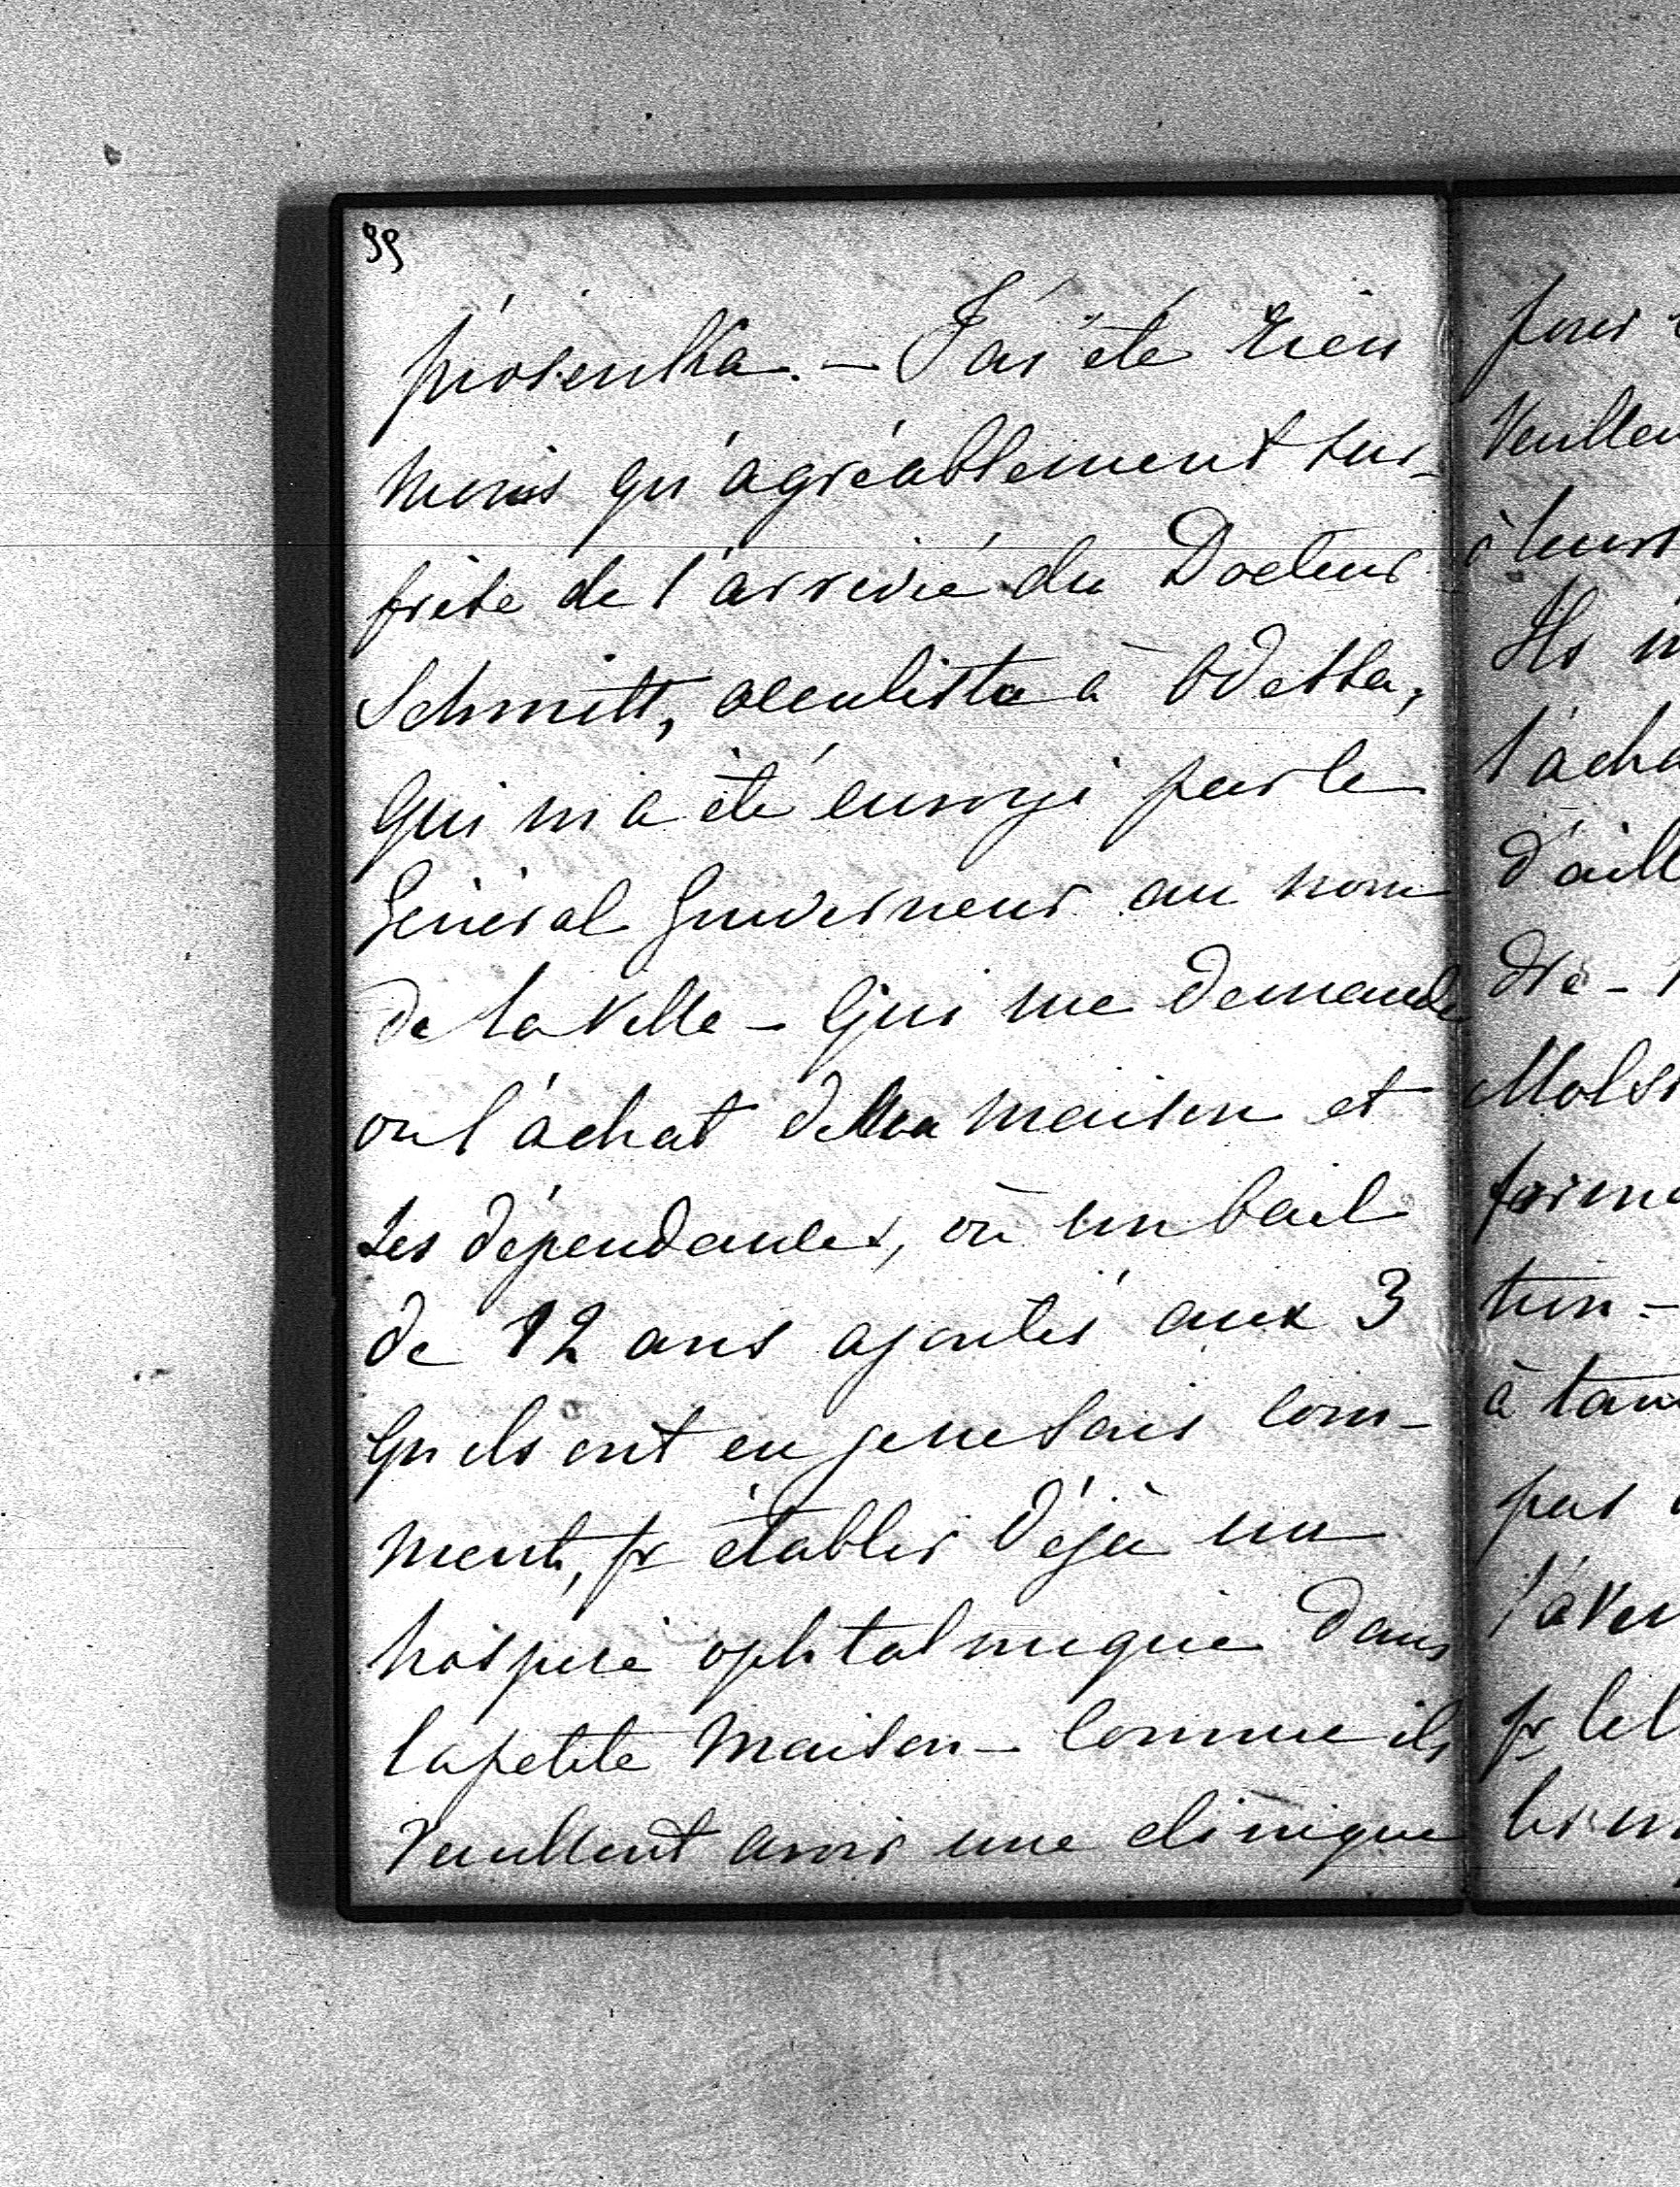 99
J'ai été rien
moins qu'agréablement sur-
prise de l'arrivée du Docteur
Schmitt, occuliste à Odessa,
qui m'a été envoyé par le
Général Gouverneur au nom
de la Ville – qui me demande
ou l'achat de ma maison et
ses dépendances, où un bail
de 12 ans ajoutés aux 3
qu'ils ont eu je ne sais com-
ment, pr établir déjà un
hospice ophtalmique dans
la petite maison – comme ils
veullent avoir une clinique
pour
à leurs
Ils
d'aill
dre –
tion –
à tan
pas
pr